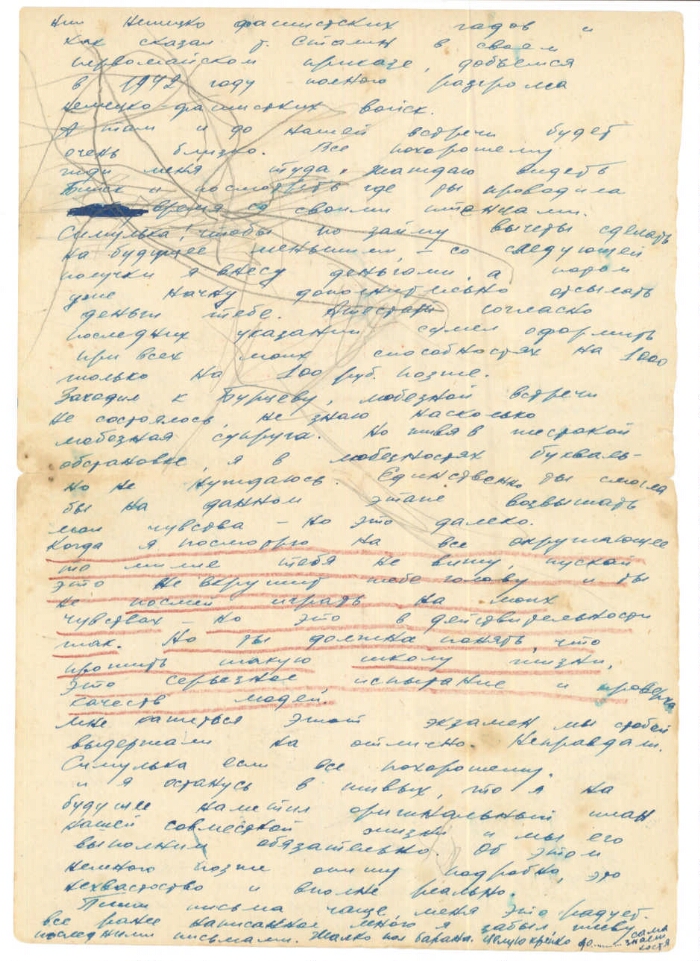 немецко фашистских гадов и
как сказал т. Сталин в своем
первомайском приказе, добьемся
в 1942 году полного разгрома
немецко фашистких войск.
А там и до нашей встречи будет
очень близко. Все похорошему
жди меня туда, жажду видеть
и посмотреть где ты проводила
время со своими птенками.
Симулька! чтобы по займу вычеты сделать
на будущее меньшими, – со следующей
получки я внесу деньгами, а потом
уже начну дополнительно отсылать
деньги тебе. Аттестат согласно
последних указаний сумел оформить
при всех моих способностях на 1000
только на 100 руб. позже.
Заходил к Бурцеву, любезной встречи
не состоялось, не знаю насколько
любезная, супруга. Но живя в жестокой
обстановке, я в любезностях букваль-
но не нуждаюсь. Единственно ты смогла
бы на данном этапе возвышать
мои чувства – но это далеко.
Когда я посмотрю на все окружающее
то милие тебя не вижу, пускай
это не вскружит тебе голову и ты
не посмей играть на моих
чувствах – но это в действительности
так. Но ты должна понять, что
прожить такую школу жизни,
это серьезное испытание и проверка
качеств людей.
Мне кажеться этот экзамен мы с тобой
выдержали на отлично. Неправдали.
Симулька если все похорошему.
и я останусь в живых, то я на
будущее наметил оригинальный план
нашей совместной жизни и мы его
выполним обязательно. Об этом
немного позже опишу подробно, это
нехвастоство и вполне реально.
Пиши письма чаще меня это радует.
все ранее написанное много я забыл
последними письмами. Жалко Целую крепко до..... сама
знаеш
костя